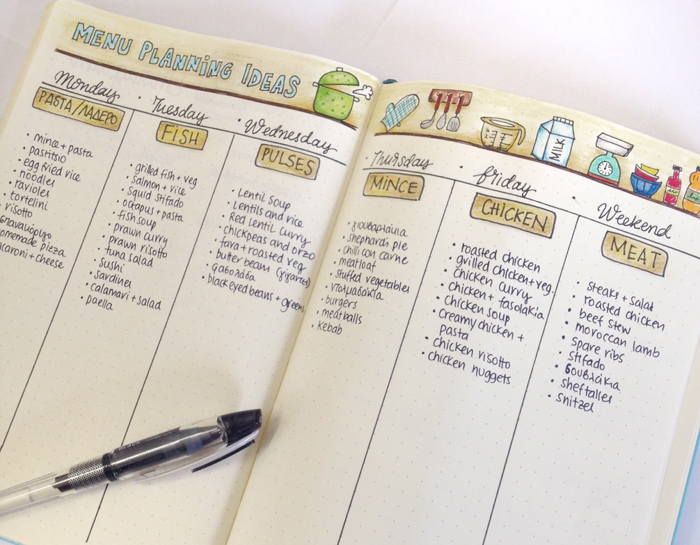 MENU PLANNING IDEAS
Monday
PASTA/ΛΑΔΕΡΟ
• mince + pasta
• pastitsio
• egg fried rice
• noodles
• ravioles
• tortelini
• risotto
omemade pizza
acaroni + cheese
• Tuesday
FISH
• grilled fish + veg
• salmon + rice
• squid stifado
• octapus + pasta
• fish soup
• prawn curry
• prawn risotto
• tuna salad
• sushi
• sardines
• calamari + salad
• paella
• Wednesday
PULSES
• Lentil soup
• Lentils and rice
• Red lentil curry
• chickpeas and orzo
• fava + roasted veg
• butter beans (gigantes)
• φασολάδα
• black eyed beans + greens
Thursday
MINCE
• γιουβαρλάκια
• shephards pie
• chilli con carne
• meatloaf
• stuffed vegetables
• ντολμαδάκια
• burgers
• meatballs
• kebab
MILK
• friday
CHICKEN
• roasted chicken
• grilled chicken + veg
• chicken curry
• chicken + fasolakia
• chicken soup
• creamy chicken +
pasta
• chicken risotto
• chicken nuggets
• Weekend
MEAT
• steaks + salad
• roasted chicken
• beef stew
• moroccan lamb
• spare ribs
• stifado
• σουβλάκια
• sheftalies
• snitzel